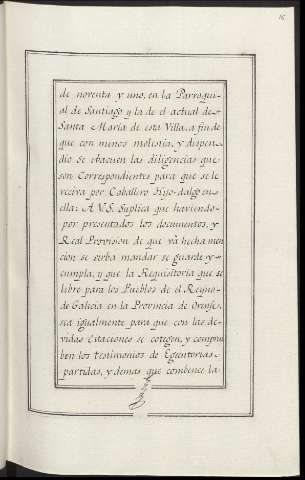 de noventa y uno, en la Parroqui-
al de Santiago y la de el actual de
Santa Maria de esta Villa, a fin de
que con menos molestia, y dispen-
dio se ebacuen las diligencias que
son Correspondientes para que se le
reciva por Caballero hijo-dalgo en
ella: A V.S. Suplica que haviendo
por presentados los documentos, y
Real Provision de que va hecha men
cion se sirba mandar se guarde y
cumpla, y que la Requisitoria que se
libre para los Pueblos de el Reyno
de Galicia en la Provincia de Orense
sea igualmente para que con las de-
vidas Citaciones se cotegen, y comprue
ben los testimonios de Egecutorias
partidas, y demas que combence la